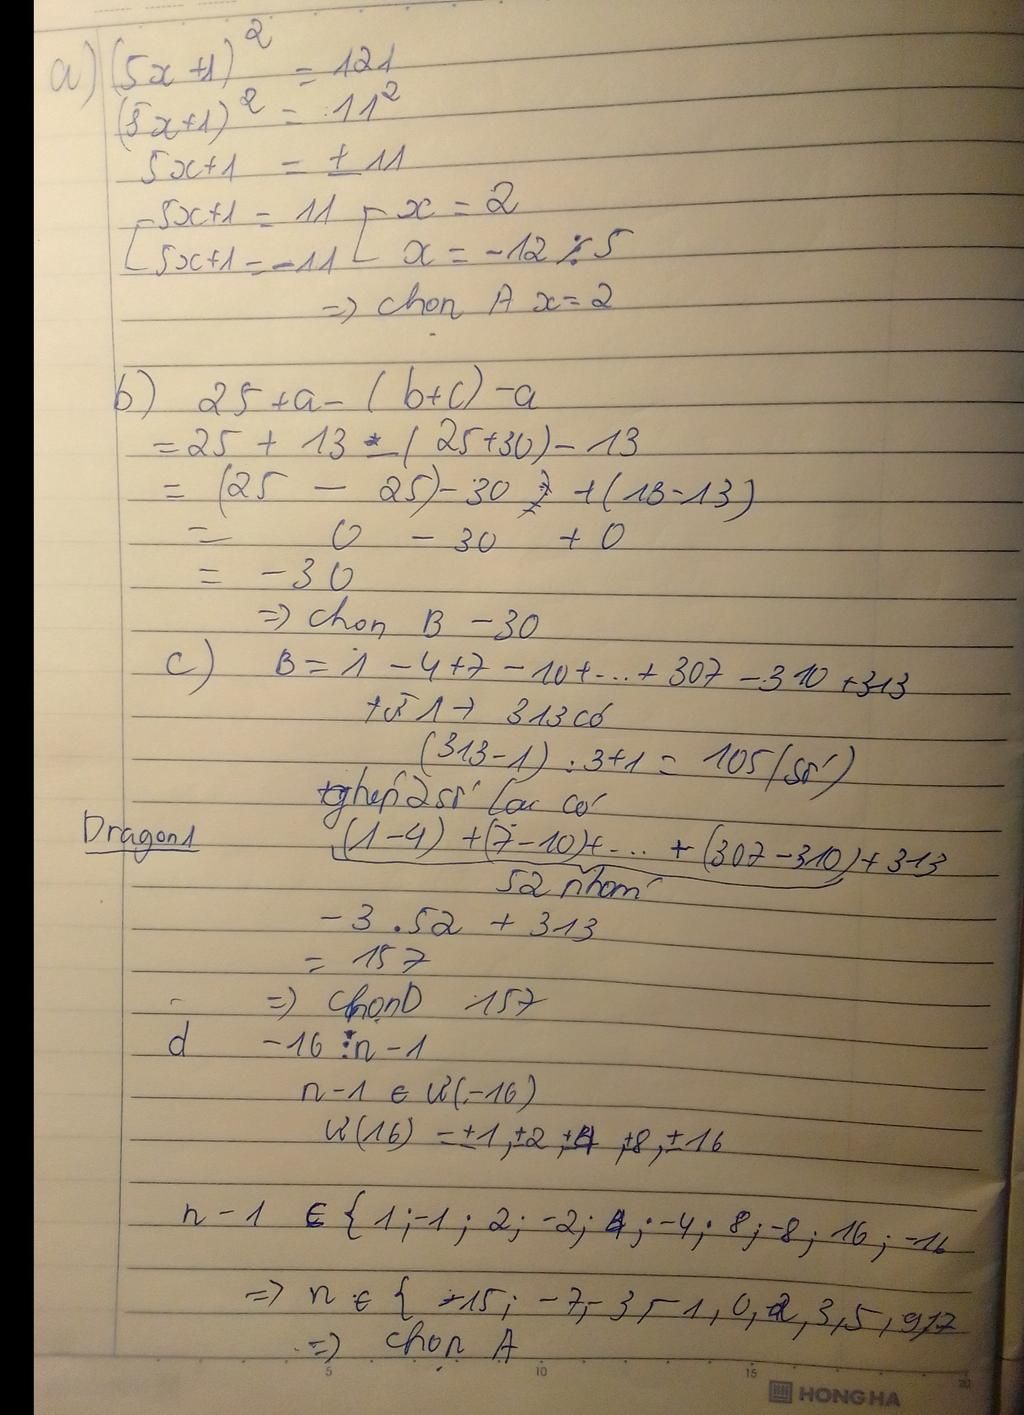 a) (5x+1)² = 121
(5x+1)² = 11²
5x+1 = ± 11
5x+1 = 11 x = 2
5x+1 = -11 x = -12 : 5
=> chon A x = 2
b) 25 + a - (b+c) - a
= 25 + 13 - (25+30) - 13
= (25 - 25) - 30 + (13-13)
= 0 - 30 + 0
= -30
=> chon B -30
c) B = 1 - 4 + 7 - 10 + ... + 307 - 310 + 313
từ 1 → 313 có
(313-1) : 3+1 = 105 (số)
ghép 2 số lại có
Dragon1
(1-4) + (7-10) + ... + (307-310) + 313
52 nhóm
-3 . 52 + 313
= 157
=> chon D 157
d -16 ⋮ n - 1
n-1 ∈ Ư(-16)
Ư(16) = ±1, ±2, ±4, ±8, ±16
n - 1 ∈ { 1; -1; 2; -2; 4; -4; 8; -8; 16; -16
=> n ∈ { -15; -7, -3, -1, 0, 2, 3, 5, 9, 17
=> chon A
5 10 15 20
HONG HA